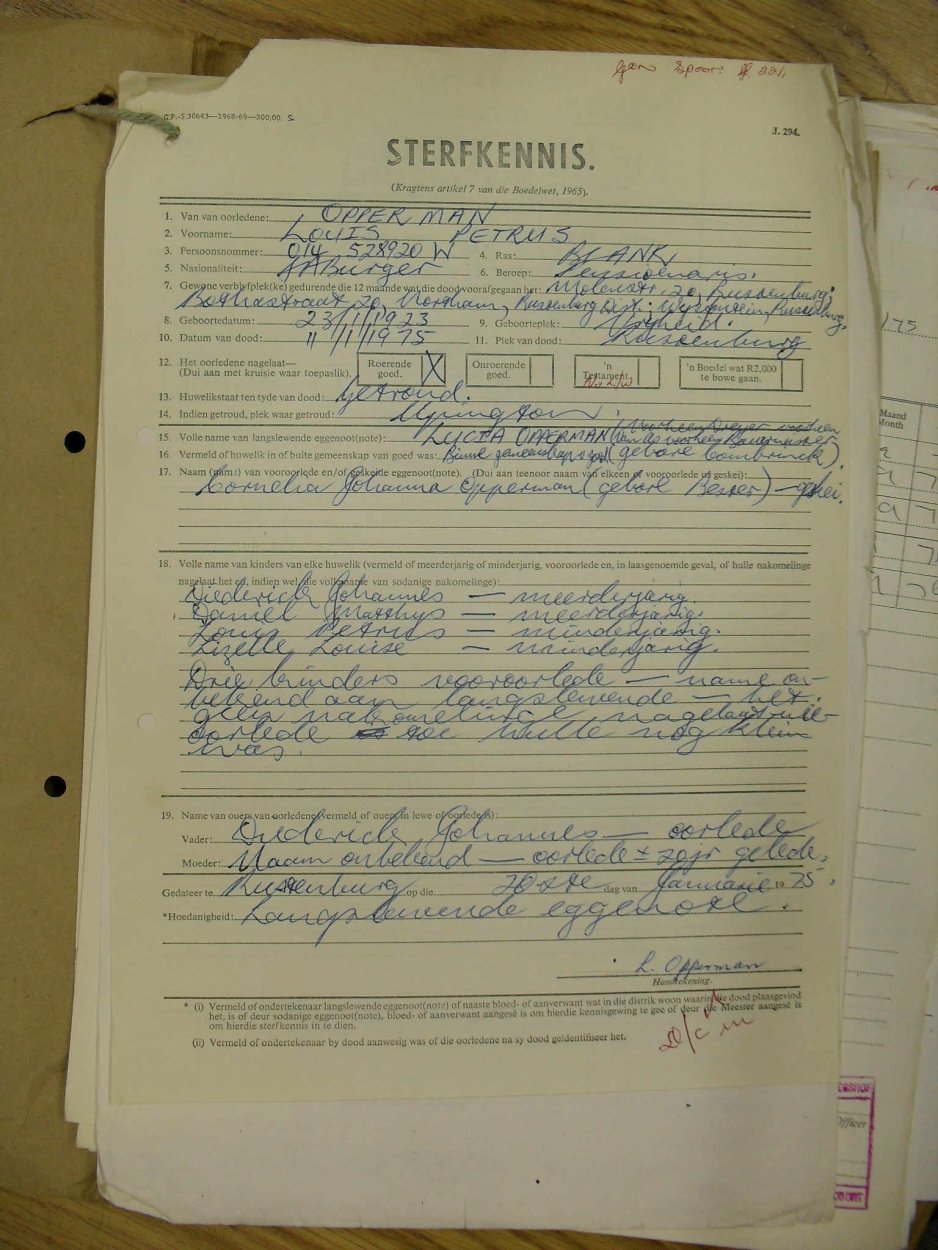 G.P.-S.30643—1968-69—300,00. S.
J. 294.
STERFKENNIS.
(Kragtens artikel 7 van die Boedelwet, 1965).
1. Van van oorledene: OPPERMAN
2. Voorname: LOUIS PETRUS
3. Persoonsnommer: 014 528920 W 4. Ras: BLANK
5. Nasionaliteit: SA Burger 6. Beroep: Pensioenaris.
7. Gewone verblyfplek(ke) gedurende die 12 maande wat die dood voorafgegaan het: Molenstr. 20, Rustenburg;
Bothastraat 20, Northam, Rustenburg Dist.; Rustenburg.
8. Geboortedatum: 23/1/1923 9. Geboorteplek: Vryheid.
10. Datum van dood: 11/1/1975 11. Plek van dood: Rustenburg
12. Het oorledene nagelaat—
(Dui aan met kruisie waar toepaslik).
Roerende goed. X
Onroerende goed.
'n Testament.
'n Boedel wat R2,000 te bowe gaan.
13. Huwelikstaat ten tyde van dood: Getroud.
14. Indien getroud, plek waar getroud: Upington.
15. Volle name van langslewende eggenoot(note): LYCIA OPPERMAN (Voorheen Dreyer voorheen
16. Vermeld of huwelik in of buite gemeenskap van goed was: Binne gemeenskap v goed (gebore Combrinck).
17. Naam (name) van vooroorlede en/of geskeide eggenoot(note). (Dui aan teenoor naam van elkeen of vooroorlede of geskei):
Cornelia Johanna Opperman (gebore Bester) — geskei.
18. Volle name van kinders van elke huwelik (vermeld of meerderjarig of minderjarig, vooroorlede en, in laasgenoemde geval, of hulle nakomelinge
nagelaat het en, indien wel, die volle name van sodanige nakomelinge):
Diederick Johannes — meerderjarig.
Daniel Matthys — meerderjarig.
Louis Petrus — minderjarig.
Lizelle Louise — minderjarig.
Drie kinders vooroorlede — name on-
bekend aan langslewende — het
geen nakomelinge nagelaat nie —
oorlede toe hulle nog klein
was.
19. Name van ouers van oorledene (vermeld of ouers in lewe of oorlede is):
Vader: Diederick Johannes — oorlede
Moeder: Naam onbekend — oorlede ± 20 jr gelede.
Gedateer te Rustenburg op die 20ste dag van Januarie 1975.
*Hoedanigheid: Langslewende eggenote.
L. Opperman
Handtekening.
* (i) Vermeld of ondertekenaar langslewende eggenoot(note) of naaste bloed- of aanverwant wat in die distrik woon waarin die dood plaasgevind
het, is of deur sodanige eggenoot(note), bloed- of aanverwant aangesê is om hierdie kennisgewing te gee of deur die Meester aangesê is
om hierdie sterfkennis in te dien.
(ii) Vermeld of ondertekenaar by dood aanwesig was of die oorledene na sy dood geïdentifiseer het.
/75
Maand
Month
Officer